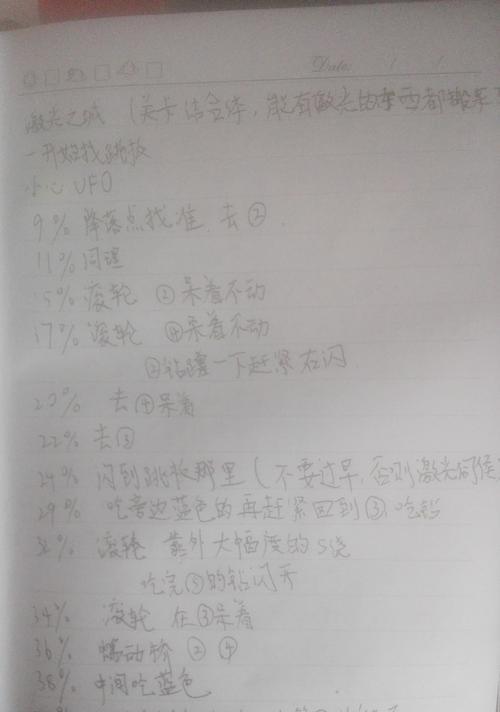 Date: / /
激光之城（关卡结合体，能有激光的东西都
一开始找跳板
小心UFO
9% 降落点找准 去②.
11% 同理
15% 滚轮 ②呆着不动
17% 滚轮 ④呆着不动
②钻 一下赶紧右闪
20% 去④呆着
22% 去③
24% 闪到跳板那里（不要过早，否则激光伺候
29% 吃旁边蓝色的再赶紧回到③吃钻
32% 滚轮 靠外大幅度的S绕
吃完⑤的钻闪开
34% 滚轮 在③呆着
36% 蠕动桥 ② ④
38% 中间吃蓝色